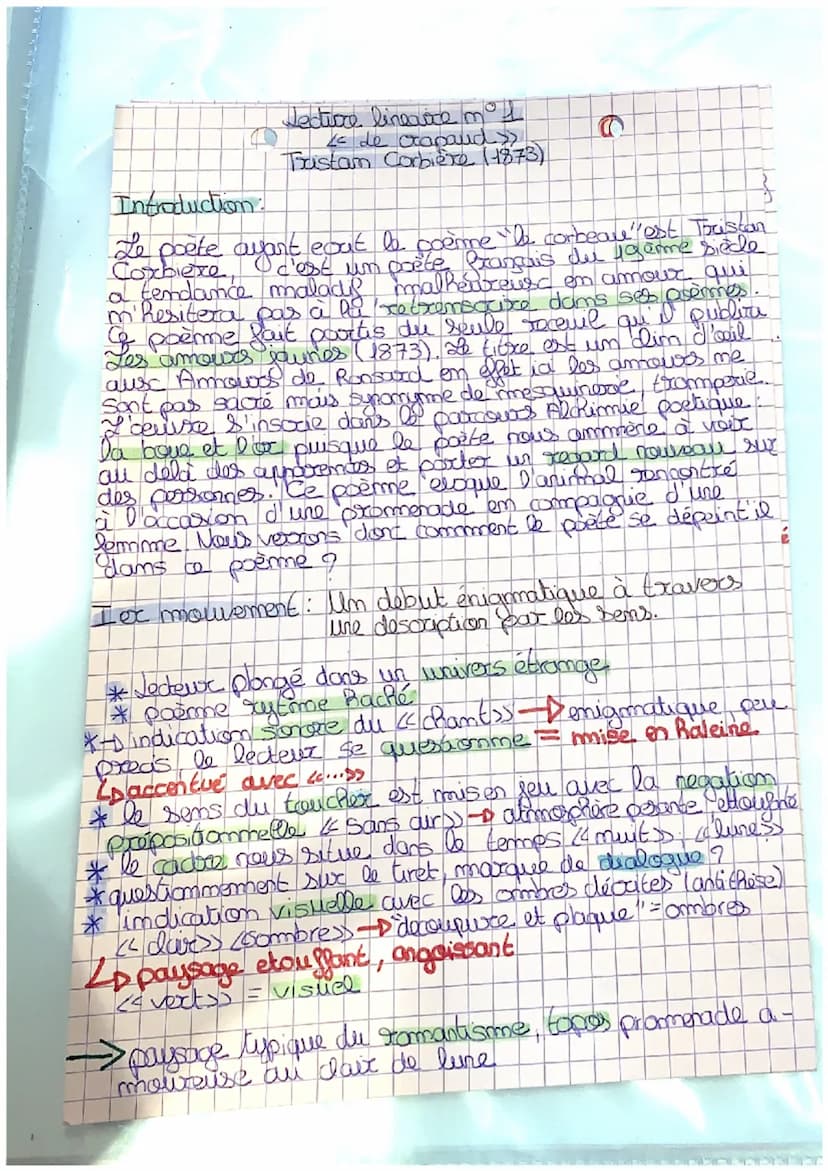 Lecture linéaire n° 1
<< Le crapaud >>
Tristan Corbière (1873)
Introduction:
Le poète ayant ecrit le poème "le corbeau" est Tristan
Corbière, c'est un poète français du 19ème siècle
a tendance maladif, malheureux en amour qui
n'hesitera pas à la retranscrire dans ses poèmes.
Ce poème fait partis du seule receuil qu'il publira
Les amours jaunes (1873). Le titre est un clin d'œil
aux Amours de Ronsard en effet ici les amours ne
sont pas sacré mais synonyme de mesquinerie, tromperie.
L'œuvre s'inscrie dans le parcours Alchimie poetique :
la boue et l'or puisque le poète nous ammène à voir
au delà des apparences et porter un regard nouveau sur
des personnes. Ce poème évoque l'animal rencontré
à l'occasion d'une promenade en compagnie d'une
femme. Nous verrons donc comment le poète se dépeint'il
dans ce poème ?
é
Ier mouvement : Un debut énigmatique à travers
une description par les sens.
* Lecteur plongé dans un univers étrange
* poème rytme haché
*→ indication sonore du << chant >> → enigmatique, peu
precis le lecteur se questionne = mise en haleine
↳ accentué avec <<...>>
* le sens du toucher est mis en jeu avec la negation
propositionnelle << sans air >> → atmosphère pesante etouffante
* le cadre nous situe dans le temps << nuit >> << lune >>
* questionnement sur le tiret, marque de dialogue ?
* indication visuelle avec les ombres décrites (antithèse)
<< clair >> << sombre >> → "decoupure et plaque" = ombres
↳ paysage etouffant, angoissant
<< vert >> = visuel
→ paysage typique du romantisme, topos promenade a-
moureuse au clair de lune